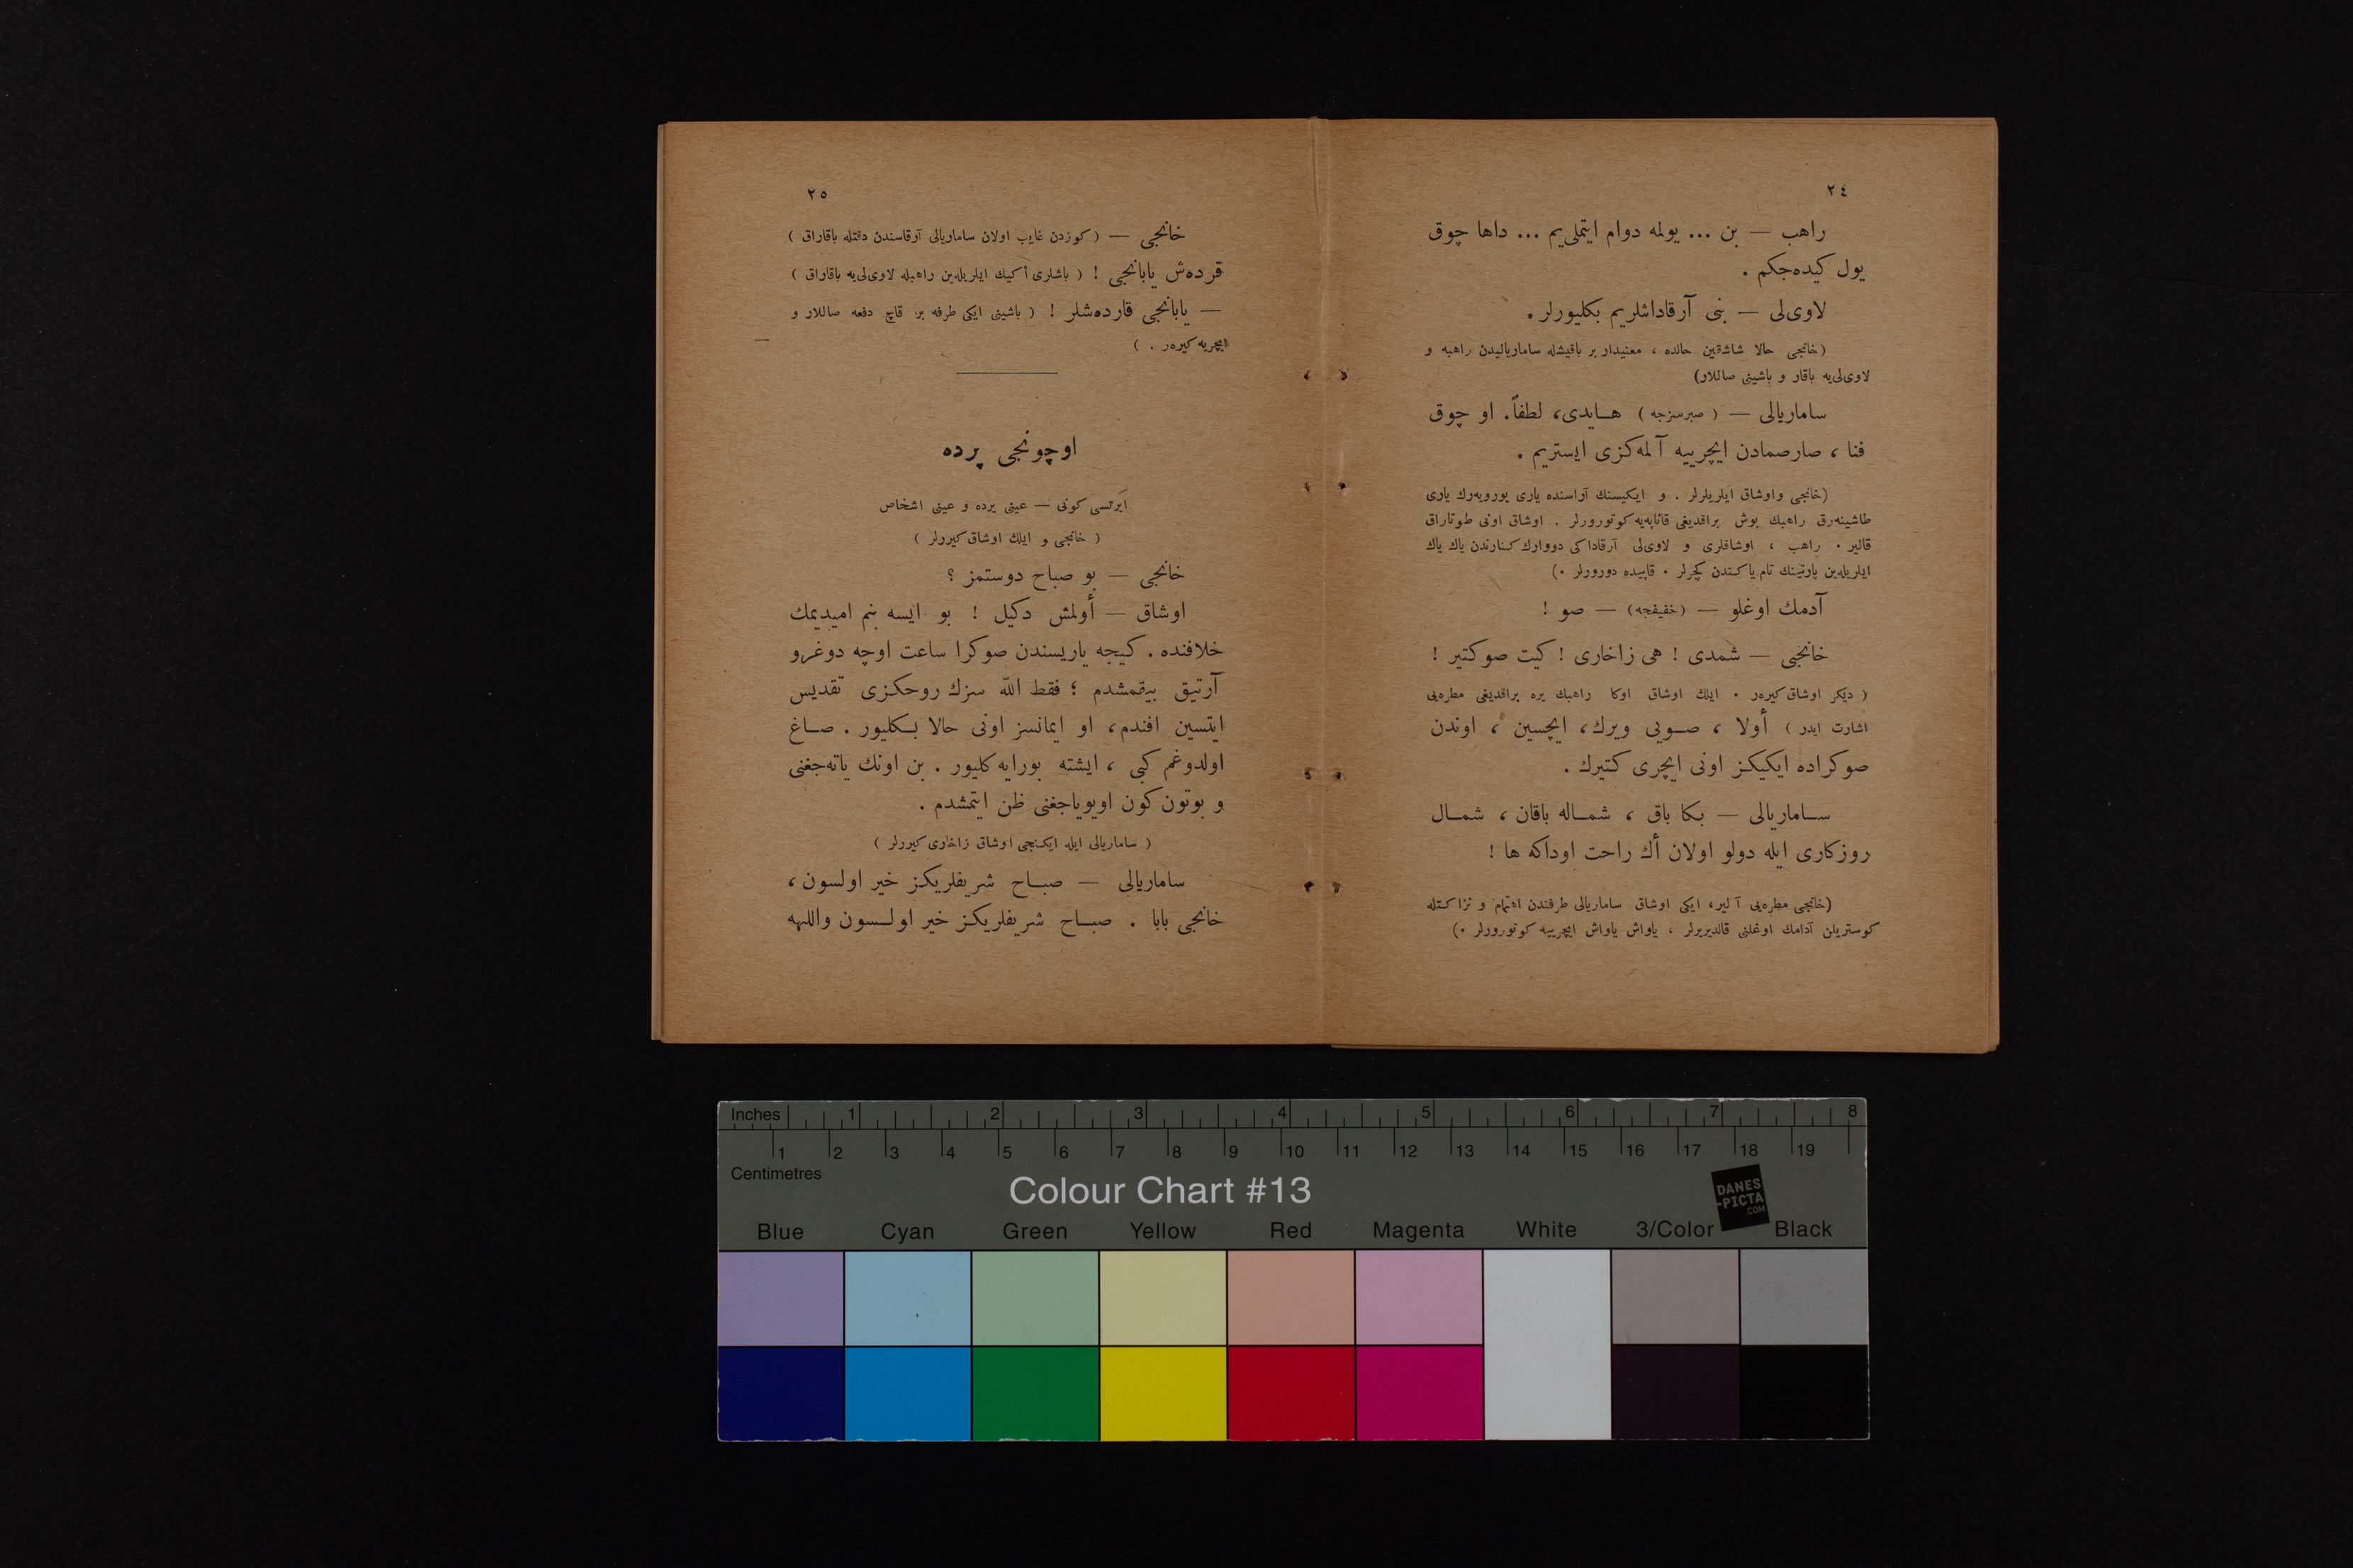 ٢٤
راهب — بن ... يولمه دوام ايتملى‌يم ... داها چوق
يول كيده‌جكم .
لاوى‌لى — بنى آرقاداشلريم بكليورلر .
(خانجى حالا شاشقين حالده ، معنيدار بر باقيشله سامارياليدن راهبه و
لاوى‌لى‌يه باقار و باشينى صاللار)
ساماريالى — ( صبرسزجه ) هـايدى، لطفاً. او چوق
فنا ، صارصمادن ايچرييه آلمه‌كزى ايستريم .
(خانجى واوشاق ايلريلرلر . و ايكيسنك آراسنده يارى يورويه‌رك يارى
طاشينه‌رق راهبك بوش براقديغى قاناپه‌يه كوتورورلر . اوشاق اونى طوتاراق
قالير . راهب ، اوشاقلرى و لاوى‌لى آرقاداكى دووارك كنارندن ياك ياك
ايلريله‌ين پارتينك تام ياكندن كچرلر . قاپيده دورورلر .)
آدمك اوغلو — (خفيفجه) — صو !
خانجى — شمدى ! هى زاخارى ! كيت صو كتير !
( ديكر اوشاق كيره‌ر . ايلك اوشاق اوكا راهبك يره براقديغى مطره‌يى
اشارت ايدر ) أولا ، صـويى ويرك، ايچسين ، اوندن
صوكراده ايكيكز اونى ايچرى كتيرك .
سـاماريالى — بكا باق ، شمـاله باقان ، شمـال
روزكارى ايله دولو اولان أك راحت اوداكه ها !
(خانجى مطره‌يى آلير، ايكى اوشاق ساماريالى طرفندن اهتمام و نزاكتله
كوستريلن آدامك اوغلنى قالديريرلر ، ياواش ياواش ايچرييه كوتورورلر .)
٢٥
خانجى — ( كوزدن غايب اولان ساماريالى آرقاسندن دقتله باقاراق )
قرده‌ش يابانجى ! ( باشلرى أكيك ايلريله‌ين راهبله لاوى‌لى‌يه باقاراق )
— يابانجى قارده‌شلر ! ( باشينى ايكى طرفه بر قاچ دفعه صاللار و
ايچريه كيره‌ر . )
اوچونجى پرده
ايرتسى كونى — عينى يرده و عينى اشخاص
( خانجى و ايلك اوشاق كيرولر )
خانجى — بو صباح دوستمز ؟
اوشاق — أولمش دكيل ! بو ايسه بنم اميديمك
خلافنده . كيجه ياريسندن صوكرا ساعت اوچه دوغرو
آرتيق بيقمشدم ؛ فقط الله سزك روحكزى تقديس
ايتسين افندم، او ايمانسز اونى حالا بـكليور . صـاغ
اولدوغم كبى ، ايشته بورايه كليور . بن اونك ياته‌جغنى
و بوتون كون اويوياجغنى ظن ايتمشدم .
( ساماريالى ايله ايكنجى اوشاق زاخارى كيررلر )
ساماريالى — صبـاح شريفلريكز خير اولسون،
خانجى بابا . صبـاح شريفلريكز خير اولـسون واللهه
Inches 1 2 3 4 5 6 7 8
1 2 3 4 5 6 7 8 9 10 11 12 13 14 15 16 17 18 19
Centimetres
Colour Chart #13
DANES
-PICTA
.COM
Blue Cyan Green Yellow Red Magenta White 3/Color Black